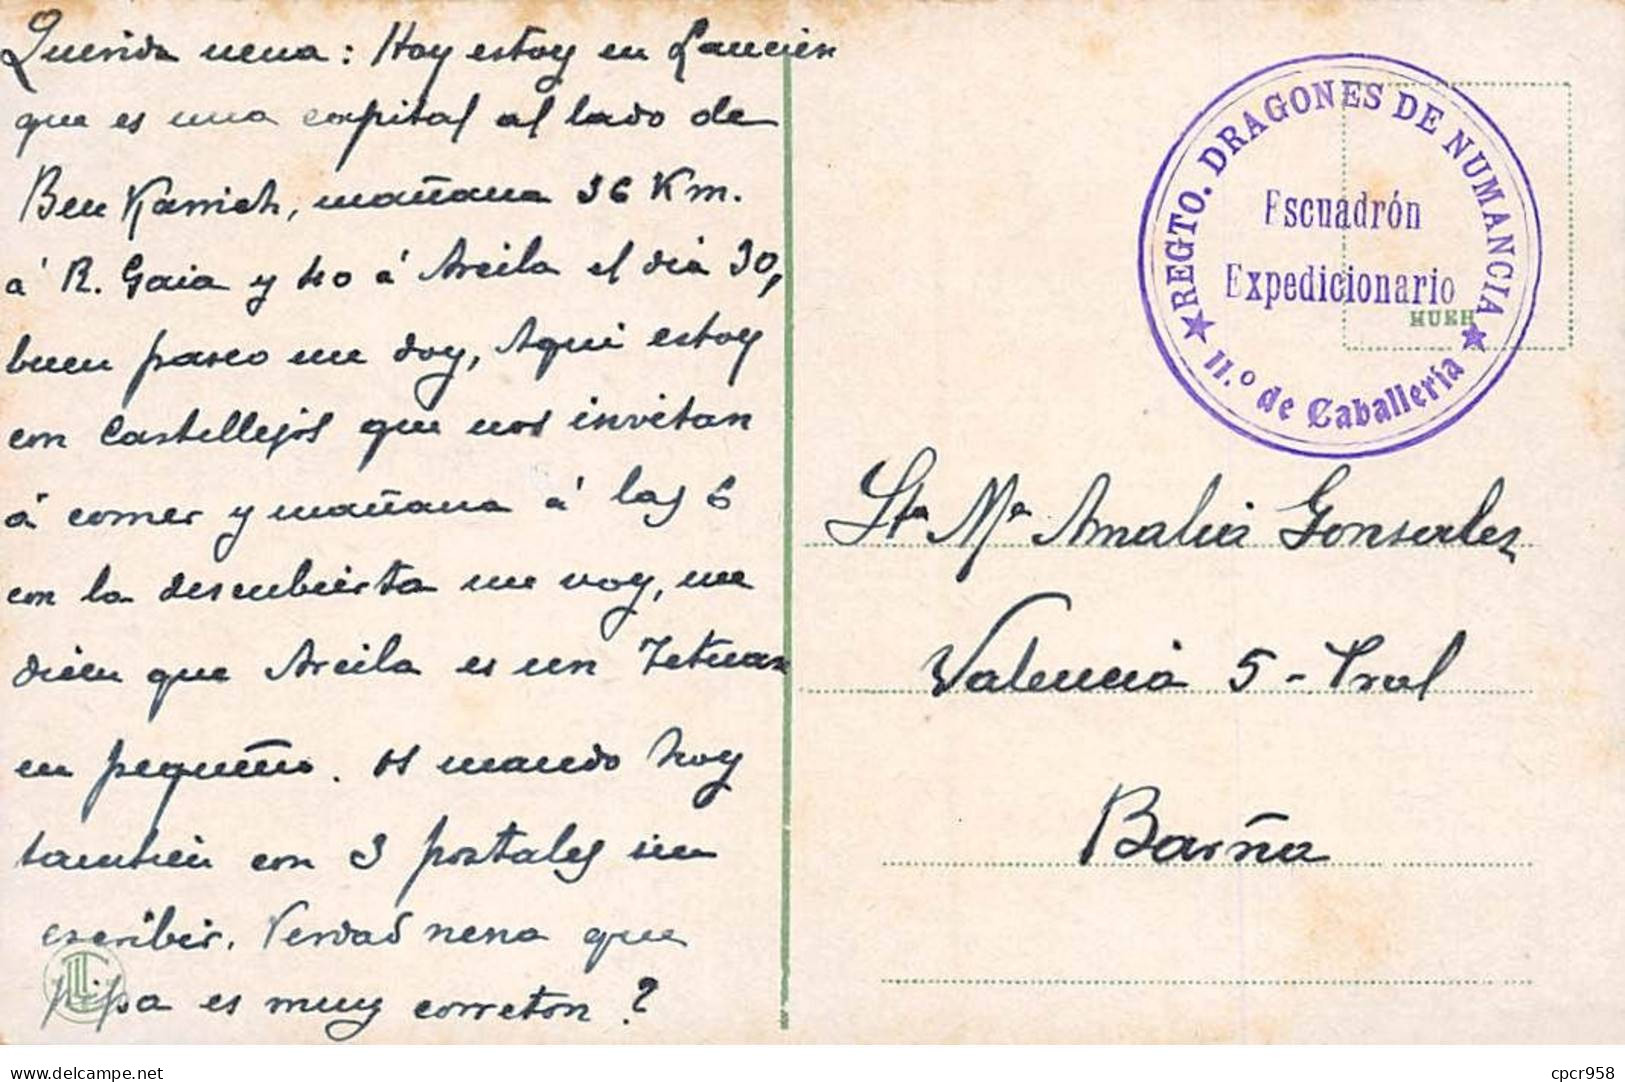 Querida nena: Hoy estoy en Laucien
que es una ospital al lado de
Ben Karrich, mañana 36 Km.
á R. Gaia y 40 á Arcila el dia 30,
buen paseo me doy, Aqui estoy
con Castillejos que nos invitan
á comer y mañana á las 6
con la descubierta me voy, me
dicen que Arcila es un Tetuan
en pequeño. os mando hoy
tambien con 3 postales sin
escribir. Verdad nena que
pipa es muy corretón?
REGTO. DRAGONES DE NUMANCIA
Escuadrón
Expedicionario
11.º de Caballería
HUEH
Sta Mª Amalia Gonsalez
Valencia 5 - Pral
Barña
delcampe.net
cpcr958